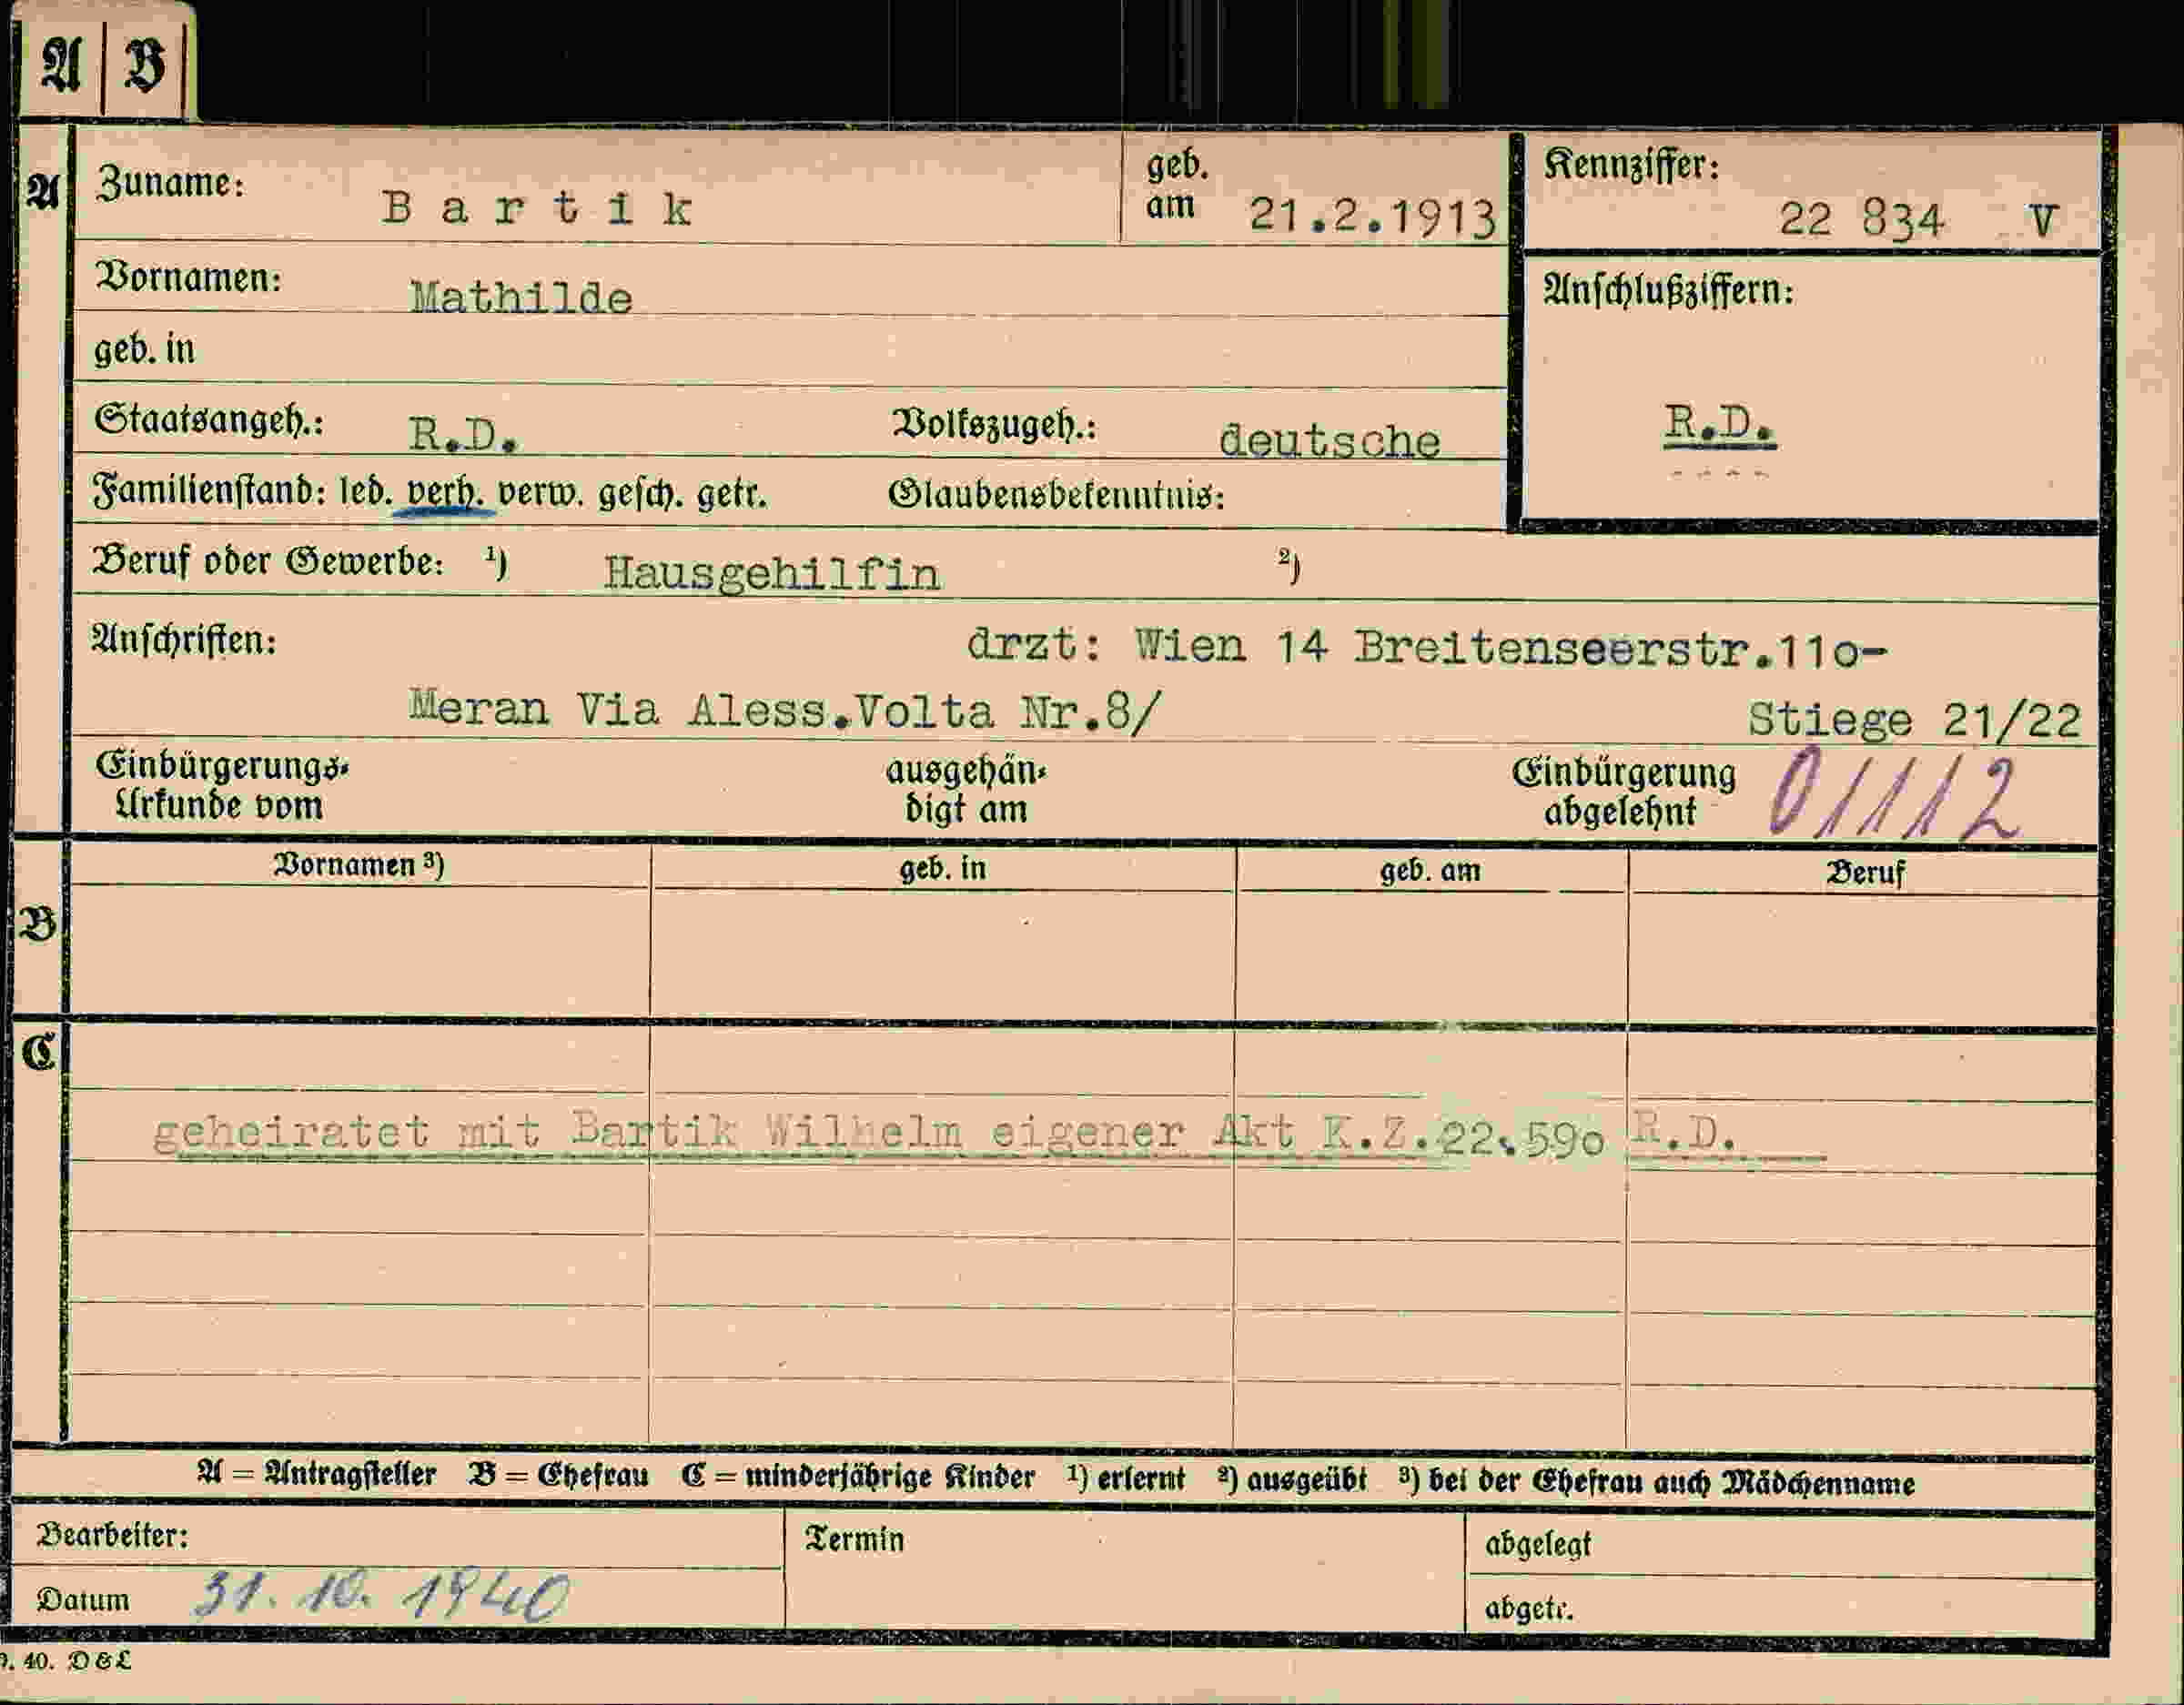 A B
A Zuname: Bartik geb. am 21.2.1913 Kennziffer: 22 834 V
Vornamen: Mathilde Anschlußziffern:
geb. in
Staatsangeh.: R.D. Volkszugeh.: deutsche R.D.
Familienstand: led. verh. verw. gesch. getr. Glaubensbekenntnis:
Beruf oder Gewerbe: ¹) Hausgehilfin ²)
Anschriften: drzt: Wien 14 Breitenseerstr.11o-
Meran Via Aless.Volta Nr.8/ Stiege 21/22
Einbürgerungs- ausgehän- Einbürgerung 01112
Urkunde vom digt am abgelehnt
Vornamen ³) geb. in geb. am Beruf
B
C
geheiratet mit Bartik Wilhelm eigener Akt K.Z.22.59o R.D.
A = Antragsteller B = Ehefrau C = minderjährige Kinder ¹) erlernt ²) ausgeübt ³) bei der Ehefrau auch Mädchenname
Bearbeiter: Termin abgelegt
Datum 31.10.1940 abgetr.
. 40. D & L